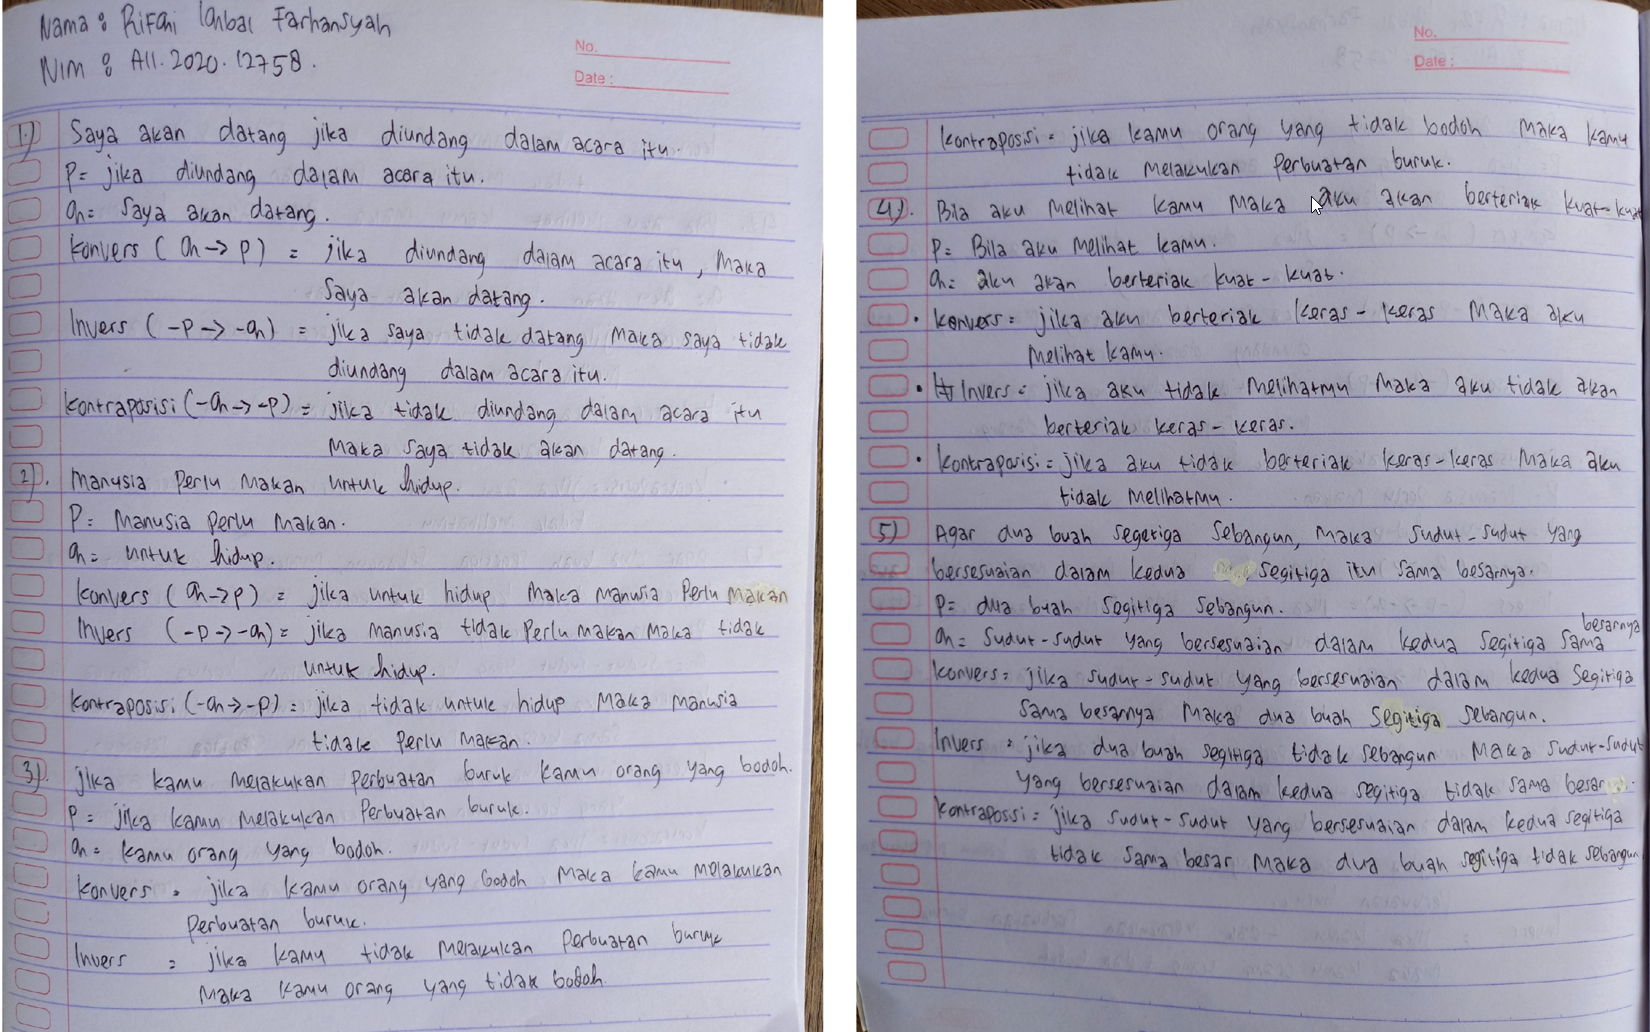 Nama : Rifqi Iqnbal Farhansyah
NIM : A11.2020.12758.
No.
Date :
1) Saya akan datang jika diundang dalam acara itu.
P= jika diundang dalam acara itu.
q= Saya akan datang.
Konvers ( q → p ) = jika diundang dalam acara itu, Maka
Saya akan datang.
Invers ( -p → -q ) = jika saya tidak datang Maka saya tidak
diundang dalam acara itu.
kontraposisi (-q → -p) = jika tidak diundang dalam acara itu
Maka saya tidak akan datang.
2). Manusia Perlu Makan untuk hidup.
P= Manusia Perlu Makan.
q= untuk hidup.
Konvers ( q → p ) = jika untuk hidup Maka Manusia Perlu Makan
Invers (-p → -q) = jika Manusia tidak Perlu Makan Maka tidak
untuk hidup.
kontraposisi (-q → -p) = jika tidak untuk hidup Maka Manusia
tidak Perlu Makan.
3). jika kamu Melakukan Perbuatan buruk kamu orang yang bodoh.
P = jika kamu Melakukan Perbuatan buruk.
q= kamu orang yang bodoh.
Konvers = jika kamu orang yang bodoh Maka kamu Melakukan
Perbuatan buruk.
Invers = jika kamu tidak Melakukan Perbuatan buruk
Maka kamu orang yang tidak bodoh.
No.
Date :
kontraposisi = jika kamu orang yang tidak bodoh Maka kamu
tidak Melakukan Perbuatan buruk.
4). Bila aku Melihat kamu Maka aku akan berteriak kuat-kuat
P= Bila aku Melihat kamu.
q= aku akan berteriak kuat-kuat.
• Konvers = jika aku berteriak keras-keras Maka aku
Melihat kamu.
• Invers = jika aku tidak Melihatmu Maka aku tidak akan
berteriak keras-keras.
• kontraposisi = jika aku tidak berteriak keras-keras Maka aku
tidak Melihatmu.
5) Agar dua buah segetiga Sebangun, Maka Sudut-sudut yang
bersesuaian dalam kedua segitiga itu sama besarnya.
P= dua buah segitiga Sebangun.
q= Sudut-sudut yang bersesuaian dalam kedua segitiga sama besarnya
Konvers = jika sudut-sudut yang bersesuaian dalam kedua Segitiga
sama besarnya Maka dua buah Segitiga Sebangun.
Invers = jika dua buah segitiga tidak sebangun Maka sudut-sudut
yang bersesuaian dalam kedua segitiga tidak sama besar
kontraposisi = jika sudut-sudut yang bersesuaian dalam kedua segitiga
tidak sama besar Maka dua buah segitiga tidak sebangun